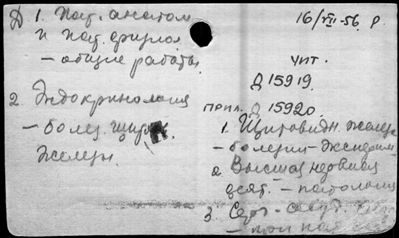 Д 1. Пат. анатом
и пат. физиол
– общие работы
2. Эндокринология
– болез. щит.
железы.
16/VII-56. Р.
ЧИТ.
Д 15919.
ПРИЛ. Д 15920.
1. Щитовидн. железа
– болезни – эксперим
2. Высшая нервная
деят. – патология
3. Серд.-сосуд.
– пат